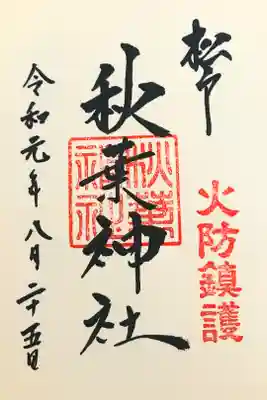 松戸
火防鎮護
秋葉神社
秋葉神社
令和元年八月二十五日